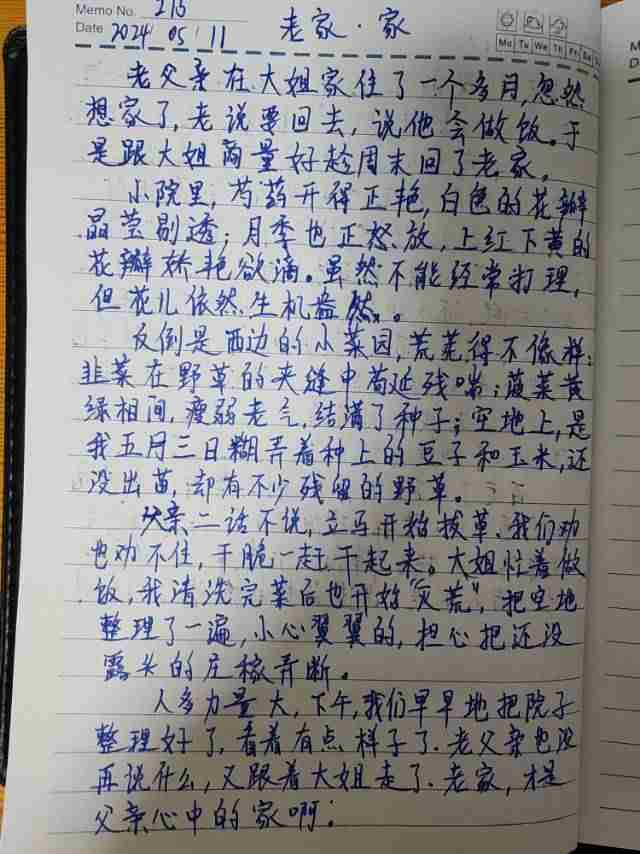 Memo No. 213
Date 2024 05 11
老家·家
Mo Tu We Th Fr Sa
老父亲在大姐家住了一个多月,忽然
想家了,老说要回去,说他会做饭。于
是跟大姐商量好趁周末回了老家。
小院里,芍药开得正艳,白色的花瓣
晶莹剔透;月季也正怒放,上红下黄的
花瓣娇艳欲滴。虽然不能经常打理,
但花儿依然生机盎然。
反倒是西边的小菜园,荒芜得不像样:
韭菜在野草的夹缝中苟延残喘;菠菜黄
绿相间,瘦弱老气,结满了种子;空地上,是
我五月三日糊弄着种上的豆子和玉米,还
没出苗,却有不少残留的野草。
父亲二话不说,立马开始拔草、我们劝
也劝不住,干脆一起干起来。大姐忙着做
饭,我清洗完菜后也开始“灭荒”,把空地
整理了一遍,小心翼翼的,担心把还没
露头的庄稼弄断。
人多力量大,下午,我们早早地把院子
整理好了,看着有点样子了.老父亲也没
再说什么,又跟着大姐走了.老家,才是
父亲心中的家啊!